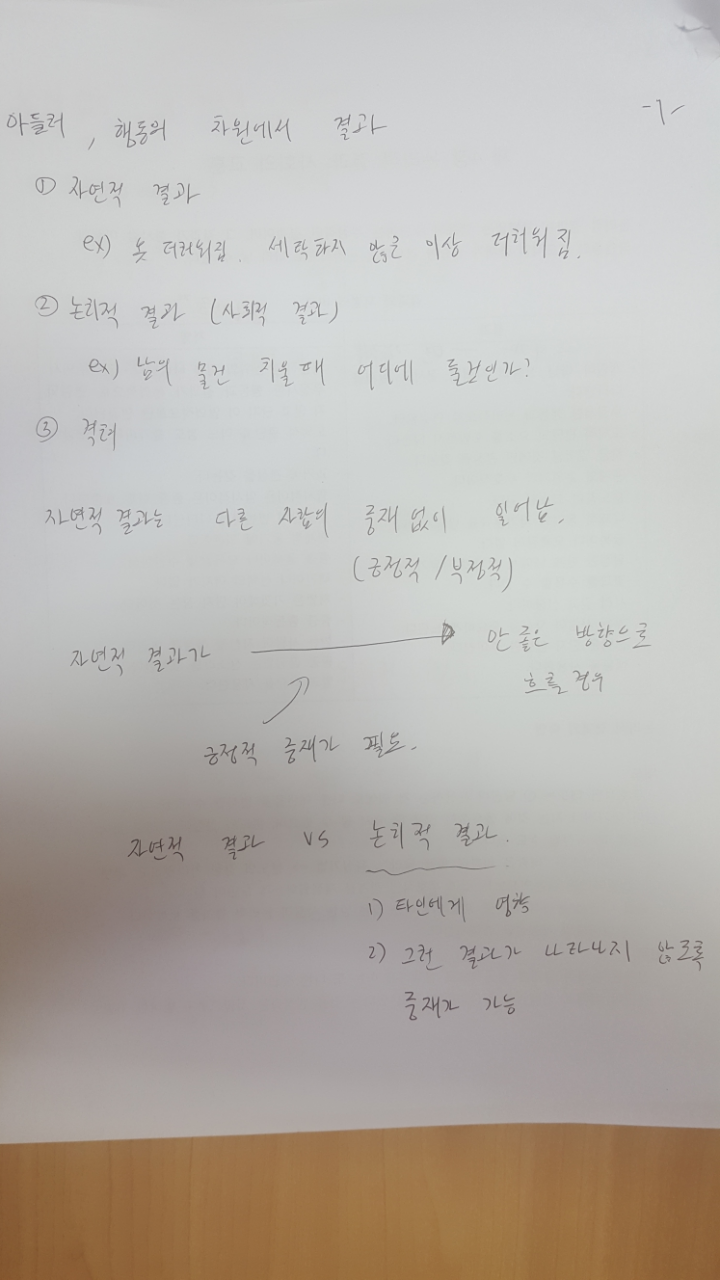 -1-
아들러, 행동의 차원에서 결과
① 자연적 결과
ex) 옷 더러워짐. 세탁하지 않은 이상 더러워짐.
② 논리적 결과 (사회적 결과)
ex) 남의 물건 치울때 어디에 둘것인가?
③ 격려
자연적 결과는 다른 사람의 중재 없이 일어남.
(긍정적 / 부정적)
자연적 결과가 → 안 좋은 방향으로
흐를 경우
긍정적 중재가 필요.
자연적 결과 vs 논리적 결과.
1) 타인에게 영향
2) 그런 결과가 나타나지 않도록
중재가 가능